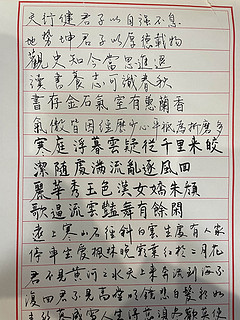 天行健君子以自强不息
地势坤君子以厚德載物
觀史知今當思進退
讀書養志可識春秋
書存金石氣室有蕙蘭香
氣傲皆因經歷少心平祗為折磨多
寒庭浮暮雲疑從千里來皎
潔隨處滿流亂逐風回
麗華秀玉色漢女嬌朱顏
歌遏流雲豔舞有餘閑
遠上寒山石徑斜白雲生處有人家
停車坐愛楓林晚霜葉红於二月花
君不見黄河之水天上來奔流到海不
復回君不見高堂明鏡悲白髮朝如
青絲暮成雪人生得意須盡歡莫使